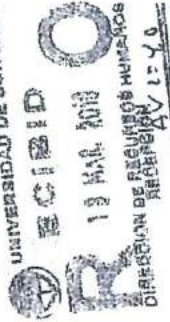 UNIVERSIDAD DE
RECIBIDO
19 MAR.
DIRECCION DE RECURSOS HUMANOS
RECEPCION